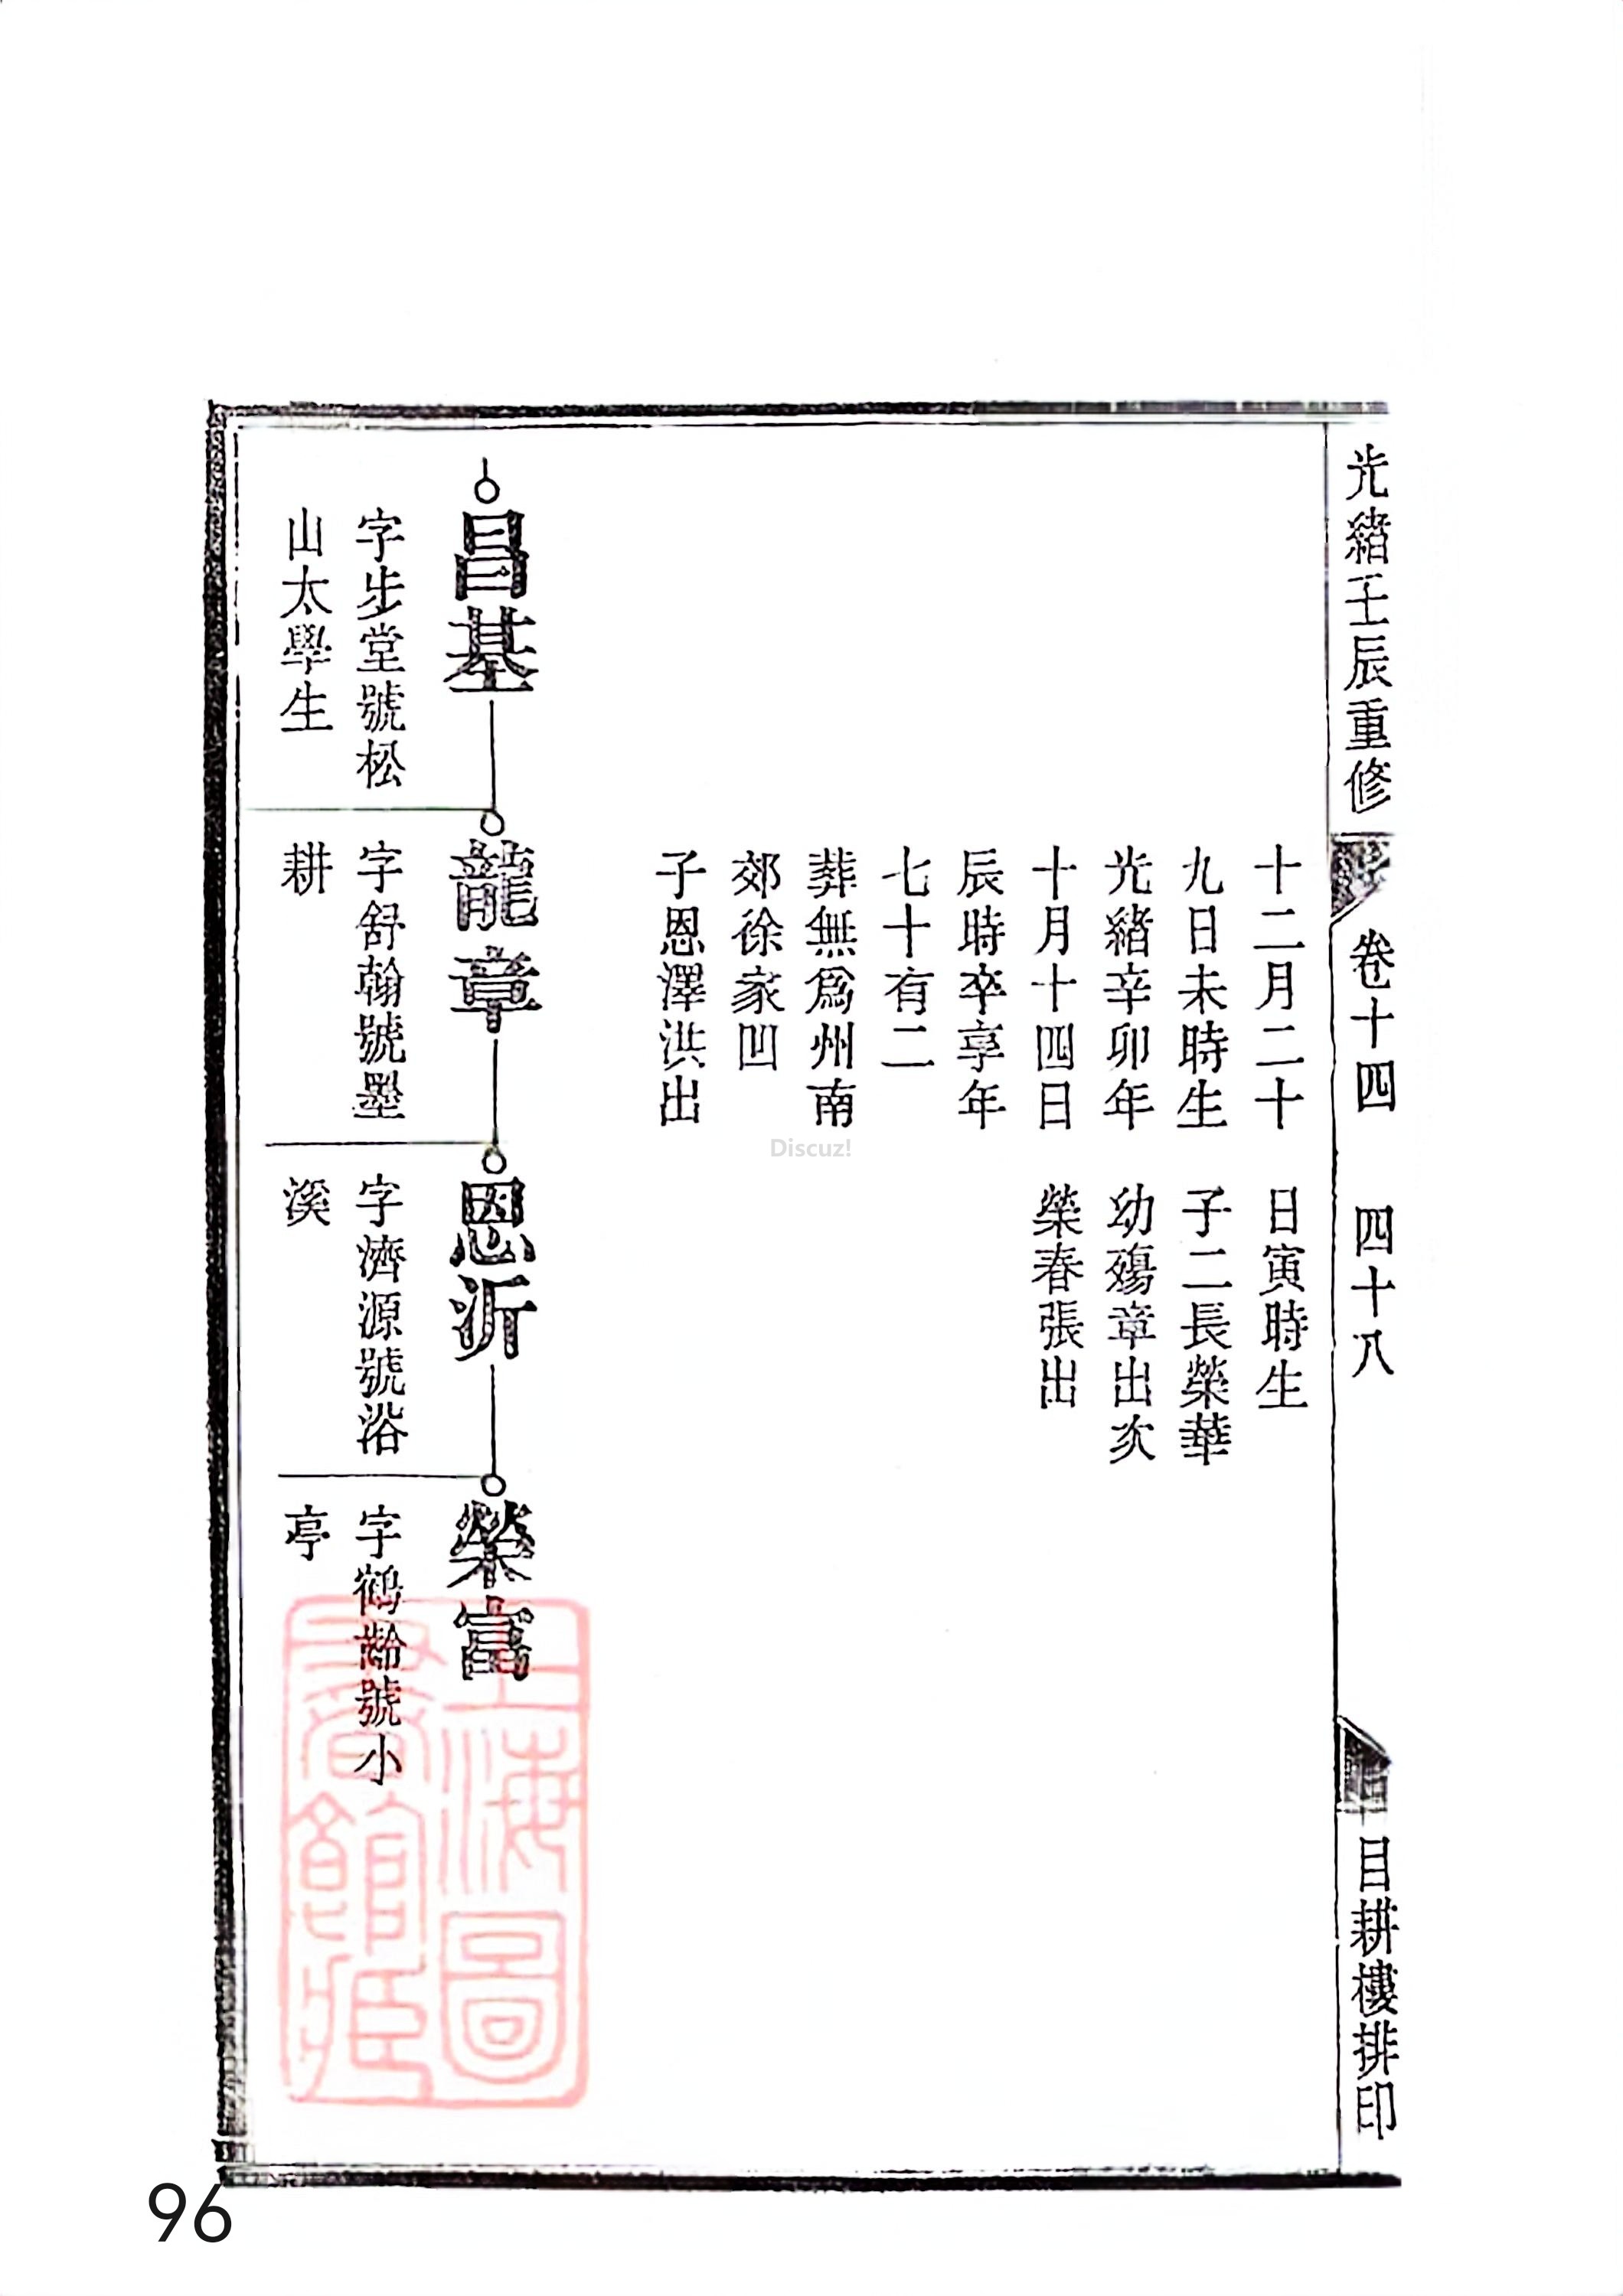 光緒壬辰重修
卷十四
四十八
目耕樓排印
十二月二十
九日未時生
光緒辛卯年
十月十四日
辰時卒享年
七十有二
葬無爲州南
郊徐家凹
子恩澤洪出
日寅時生
子二長榮華
幼殤章出次
榮春張出
昌基
字步堂號松
山太學生
龍章
字舒翰號墨
耕
恩沂
字濟源號浴
溪
榮富
字鶴齡號小
亭
上海圖
書館藏
Discuz!
96